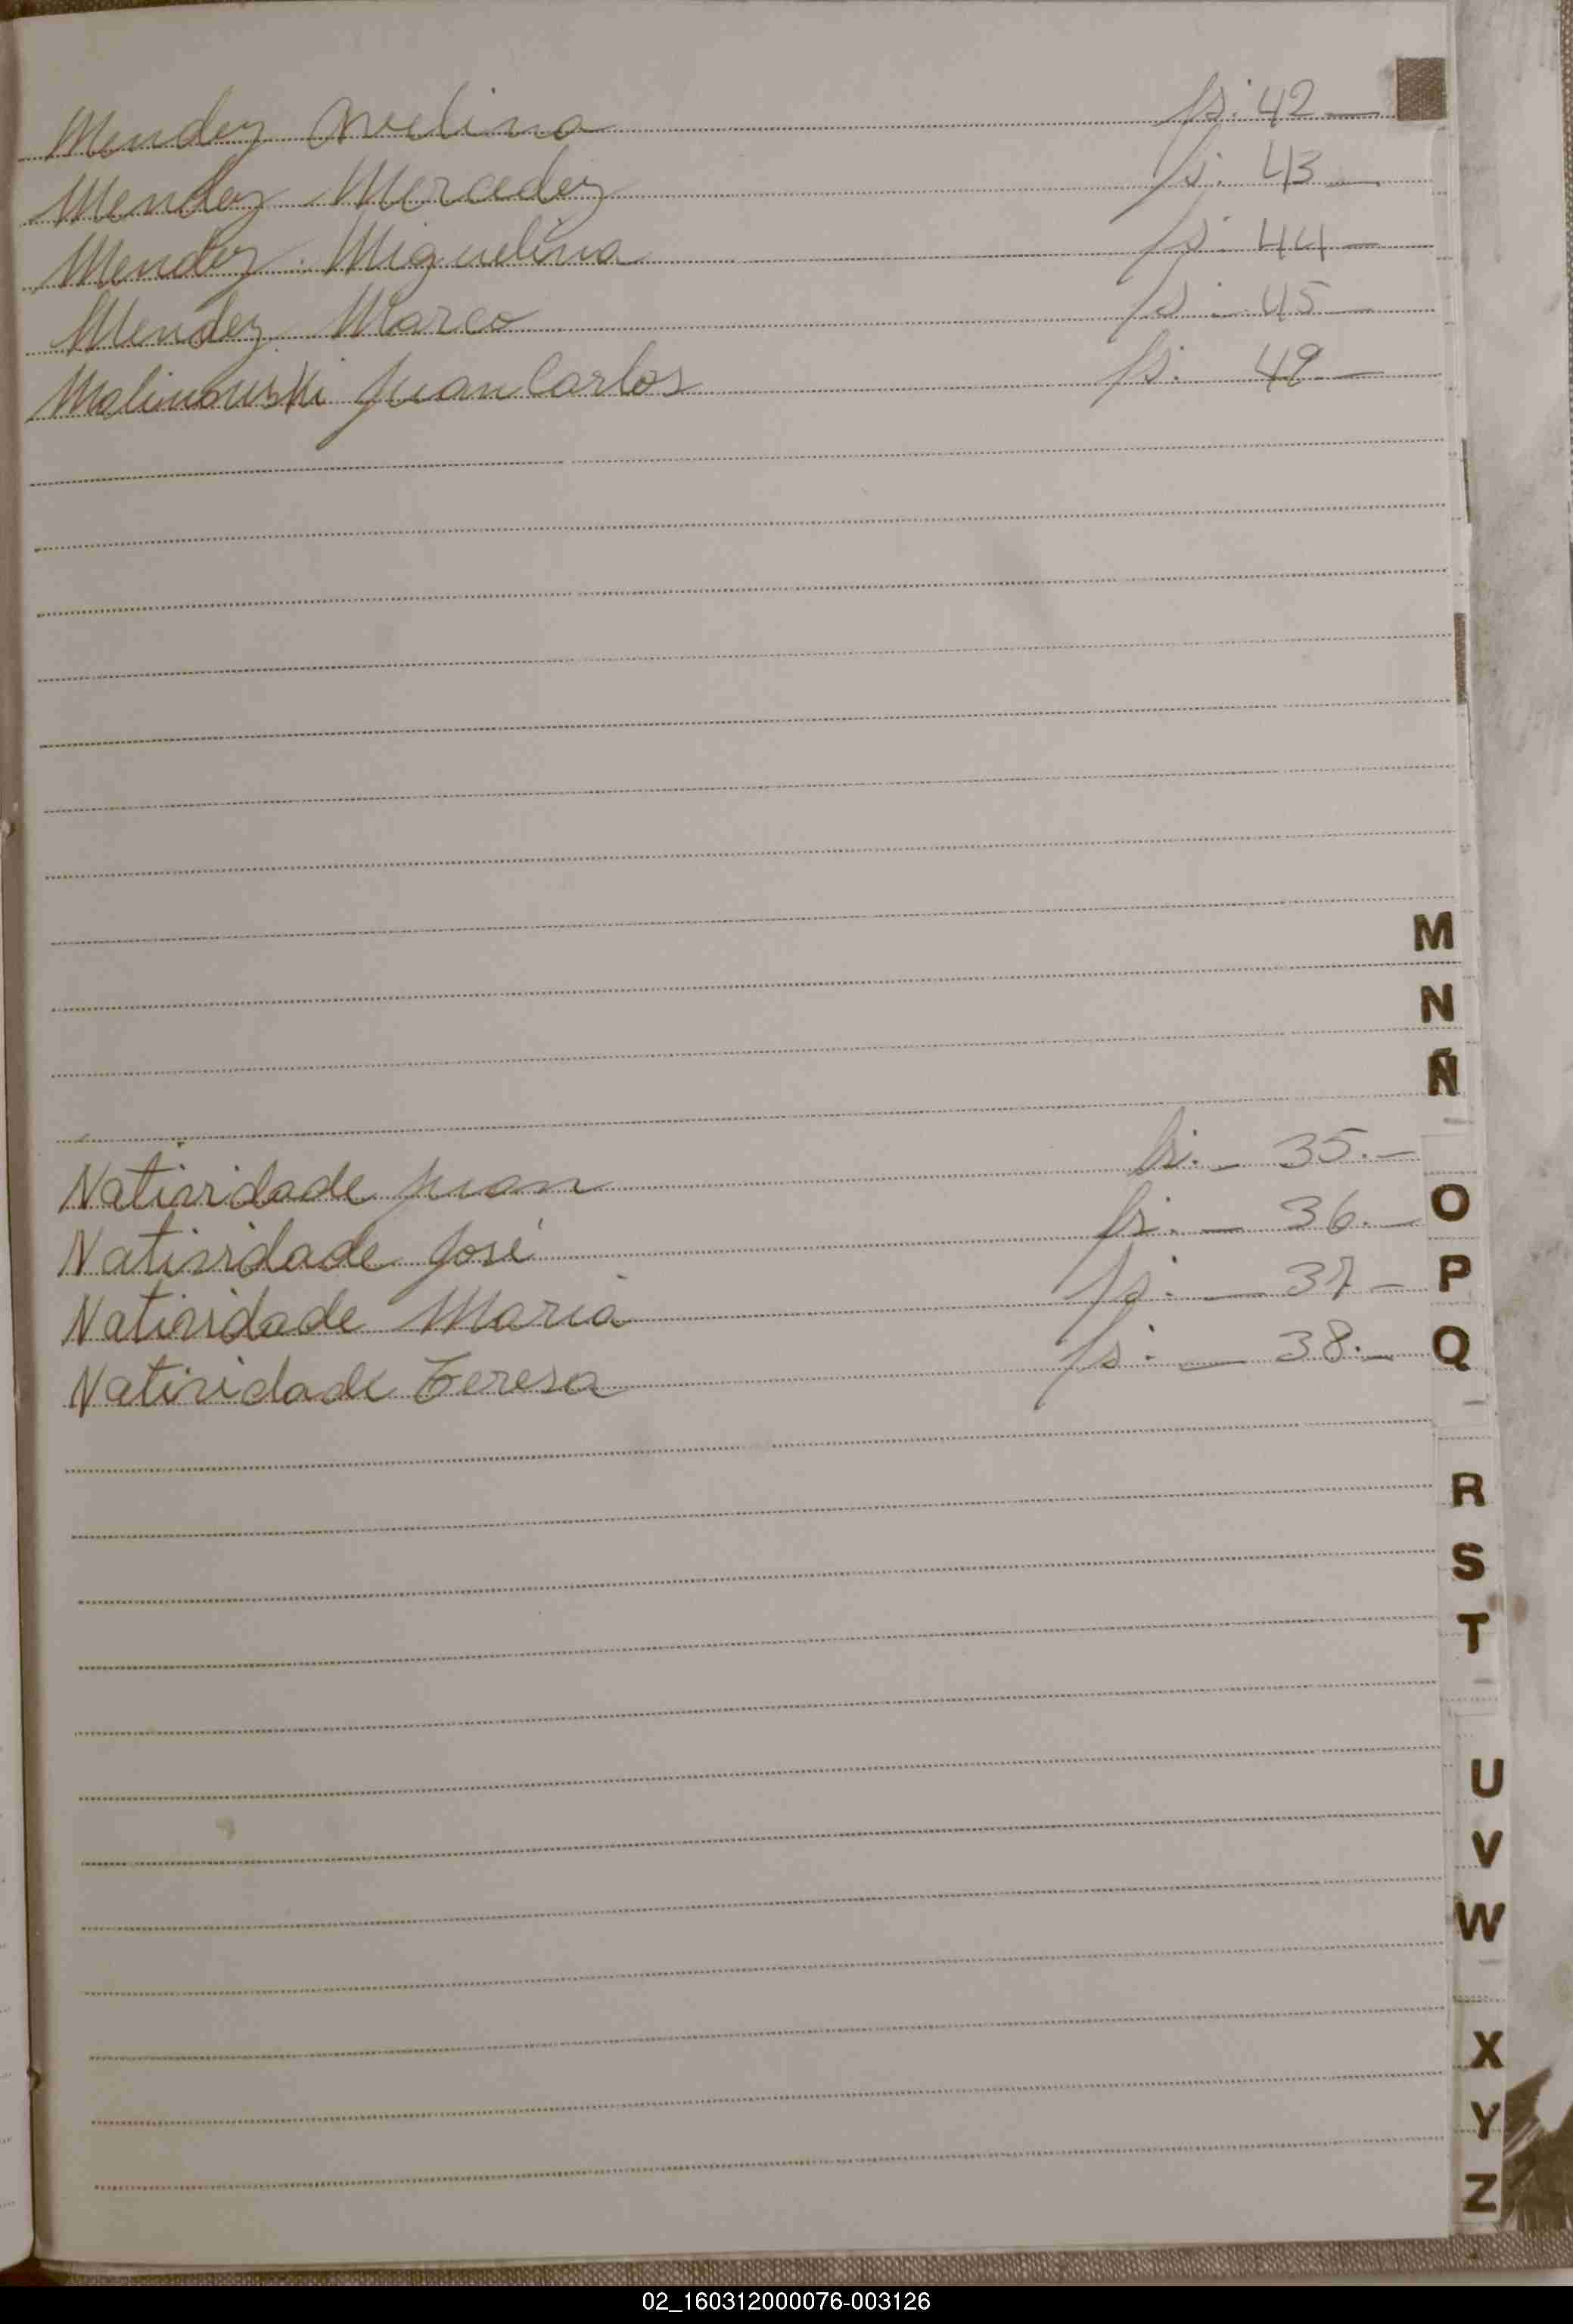 Mendez Avelina fs: 42 —
Mendez Mercedez fs. 43 —
Mendez Miguelina fs. 44 —
Mendez Marco fs. 45 —
Malinouski Juan Carlos fs. 49 —
M
N
Ñ
Natividade Juan fs. — 35. —
O
Natividade José fs. — 36. —
P
Natividade Maria fs. — 37 —
Q
Natividade Teresa fs. — 38. —
R
S
T
U
V
W
X
Y
Z
02_160312000076-003126